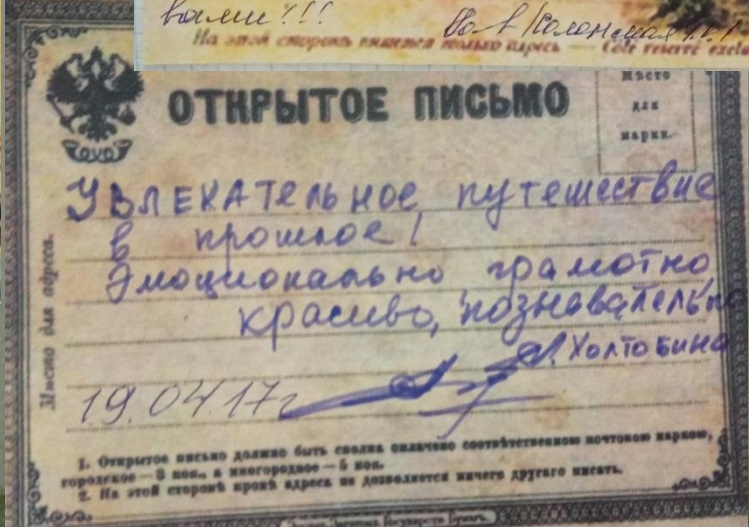 вами!!!
На этой сторонѣ пишется только адресъ — Côté réservé
ОТКРЫТОЕ ПИСЬМО
Мѣсто
для
марки.
Увлекательное путешествие
в прошлое!
Эмоционально грамотно
красиво, познавательно
Л. Холтобина
19.04.17г
Мѣсто для адреса.
1. Открытое письмо должно быть сполна оплачено соотвѣтственною почтовою маркою,
городское — 3 коп., а иногородное — 5 коп.
2. На этой сторонѣ кромѣ адреса не дозволяется ничего другаго писать.
Государств. Бумагъ.